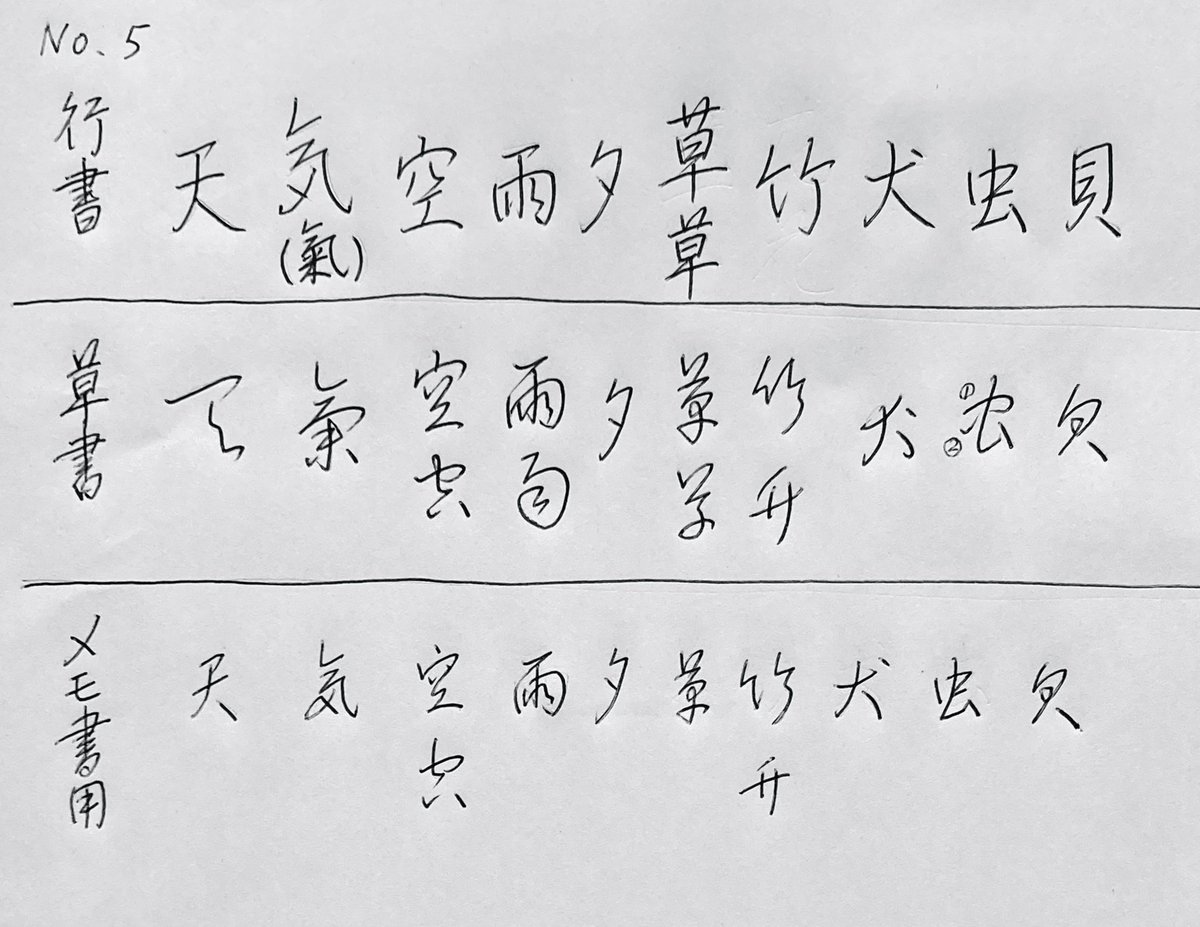 No. 5
行書 天 気 空 雨 夕 草 竹 犬 虫 貝
(氣) 草
草書 天 氣 空 雨 夕 草 竹 犬 ① 虫 ② 貝
空 雨 草 竹
メモ書き用 天 気 空 雨 夕 草 竹 犬 虫 貝
空 竹